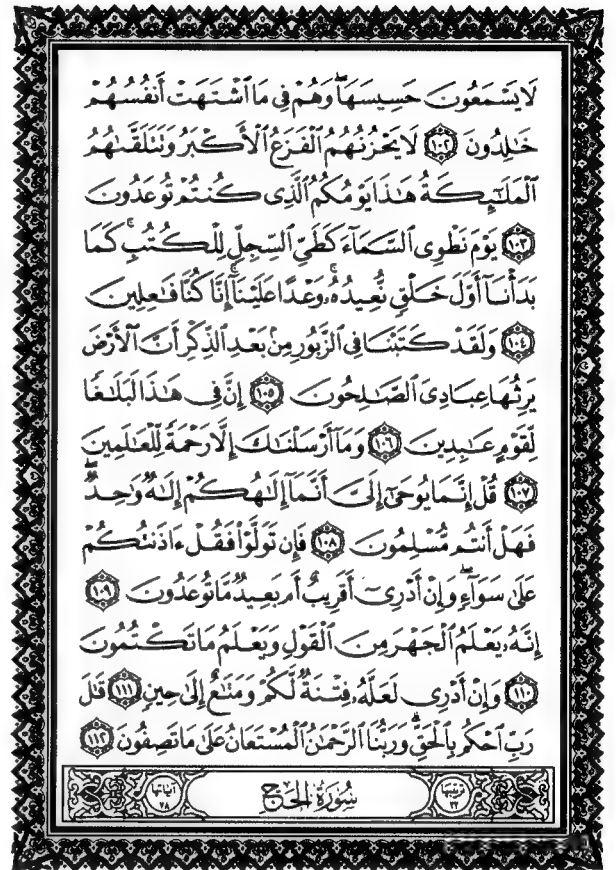 لَا يَسْمَعُونَ حَسِيسَهَا ۖ وَهُمْ فِي مَا ٱشْتَهَتْ أَنفُسُهُمْ
خَٰلِدُونَ ١٠٢ لَا يَحْزُنُهُمُ ٱلْفَزَعُ ٱلْأَكْبَرُ وَتَتَلَقَّىٰهُمُ
ٱلْمَلَٰٓئِكَةُ هَٰذَا يَوْمُكُمُ ٱلَّذِي كُنتُمْ تُوعَدُونَ
١٠٣ يَوْمَ نَطْوِي ٱلسَّمَآءَ كَطَيِّ ٱلسِّجِلِّ لِلْكُتُبِ ۚ كَمَا
بَدَأْنَآ أَوَّلَ خَلْقٍ نُّعِيدُهُۥ ۚ وَعْدًا عَلَيْنَآ ۚ إِنَّا كُنَّا فَٰعِلِينَ
١٠٤ وَلَقَدْ كَتَبْنَا فِي ٱلزَّبُورِ مِنۢ بَعْدِ ٱلذِّكْرِ أَنَّ ٱلْأَرْضَ
يَرِثُهَا عِبَادِيَ ٱلصَّٰلِحُونَ ١٠٥ إِنَّ فِي هَٰذَا لَبَلَٰغًا
لِّقَوْمٍ عَٰبِدِينَ ١٠٦ وَمَآ أَرْسَلْنَٰكَ إِلَّا رَحْمَةً لِّلْعَٰلَمِينَ
١٠٧ قُلْ إِنَّمَا يُوحَىٰٓ إِلَيَّ أَنَّمَآ إِلَٰهُكُمْ إِلَٰهٌ وَٰحِدٌ ۖ
فَهَلْ أَنتُم مُّسْلِمُونَ ١٠٨ فَإِن تَوَلَّوْا۟ فَقُلْ ءَاذَنتُكُمْ
عَلَىٰ سَوَآءٍ ۖ وَإِنْ أَدْرِيٓ أَقَرِيبٌ أَم بَعِيدٌ مَّا تُوعَدُونَ ١٠٩
إِنَّهُۥ يَعْلَمُ ٱلْجَهْرَ مِنَ ٱلْقَوْلِ وَيَعْلَمُ مَا تَكْتُمُونَ
١١٠ وَإِنْ أَدْرِي لَعَلَّهُۥ فِتْنَةٌ لَّكُمْ وَمَتَٰعٌ إِلَىٰ حِينٍ ١١١ قَٰلَ
رَبِّ ٱحْكُم بِٱلْحَقِّ ۗ وَرَبُّنَا ٱلرَّحْمَٰنُ ٱلْمُسْتَعَانُ عَلَىٰ مَا تَصِفُونَ ١١٢
ترتيبها ٢٢ سُورَةُ الحَجِّ آياتها ٧٨